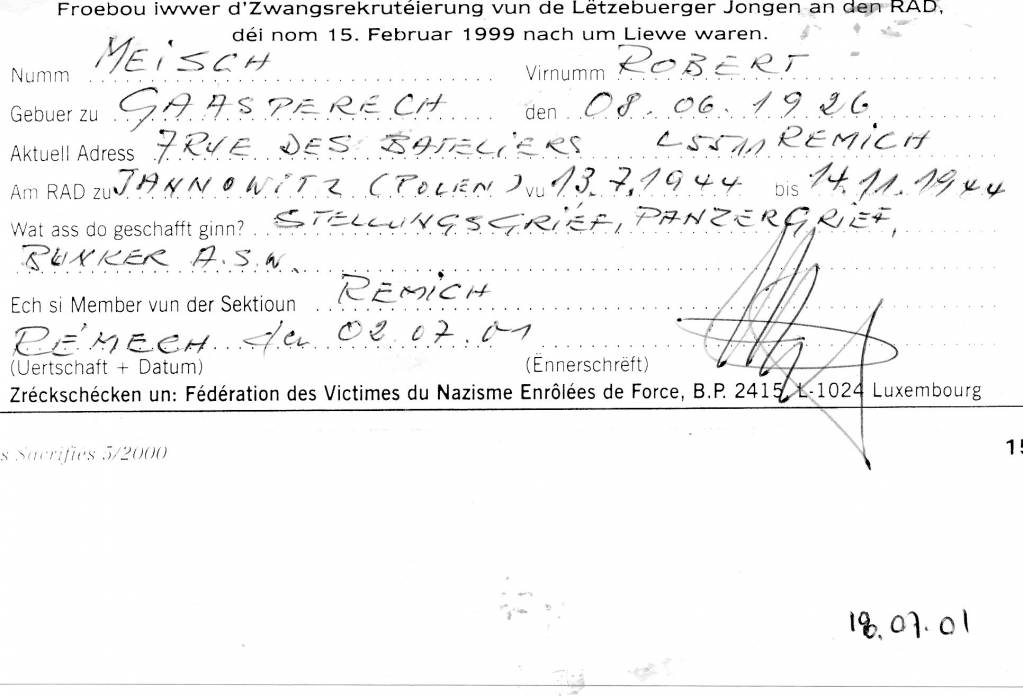 Froebou iwwer d'Zwangsrekrutéierung vun de Lëtzebuerger Jongen an den RAD,
déi nom 15. Februar 1999 nach um Liewe waren.
Numm MEISCH Virnumm ROBERT
Gebuer zu GAASPERECH den 08.06.1926
Aktuell Adress 7RUE DES BATELIERS L5511 REMICH
Am RAD zu JANNOWITZ (POLEN) vu 13.7.1944 bis 14.11.1944
Wat ass do geschafft ginn? STELLUNGSGRIEF, PANZERGRIEF,
BUNKER A.S.W.
Ech si Member vun der Sektioun REMICH
RÉMECH den 02.07.01
(Uertschaft + Datum) (Ënnerschrëft)
Zréckschécken un: Fédération des Victimes du Nazisme Enrôlées de Force, B.P. 2415, L-1024 Luxembourg
s Sacrifiés 5/2000 15
18.07.01